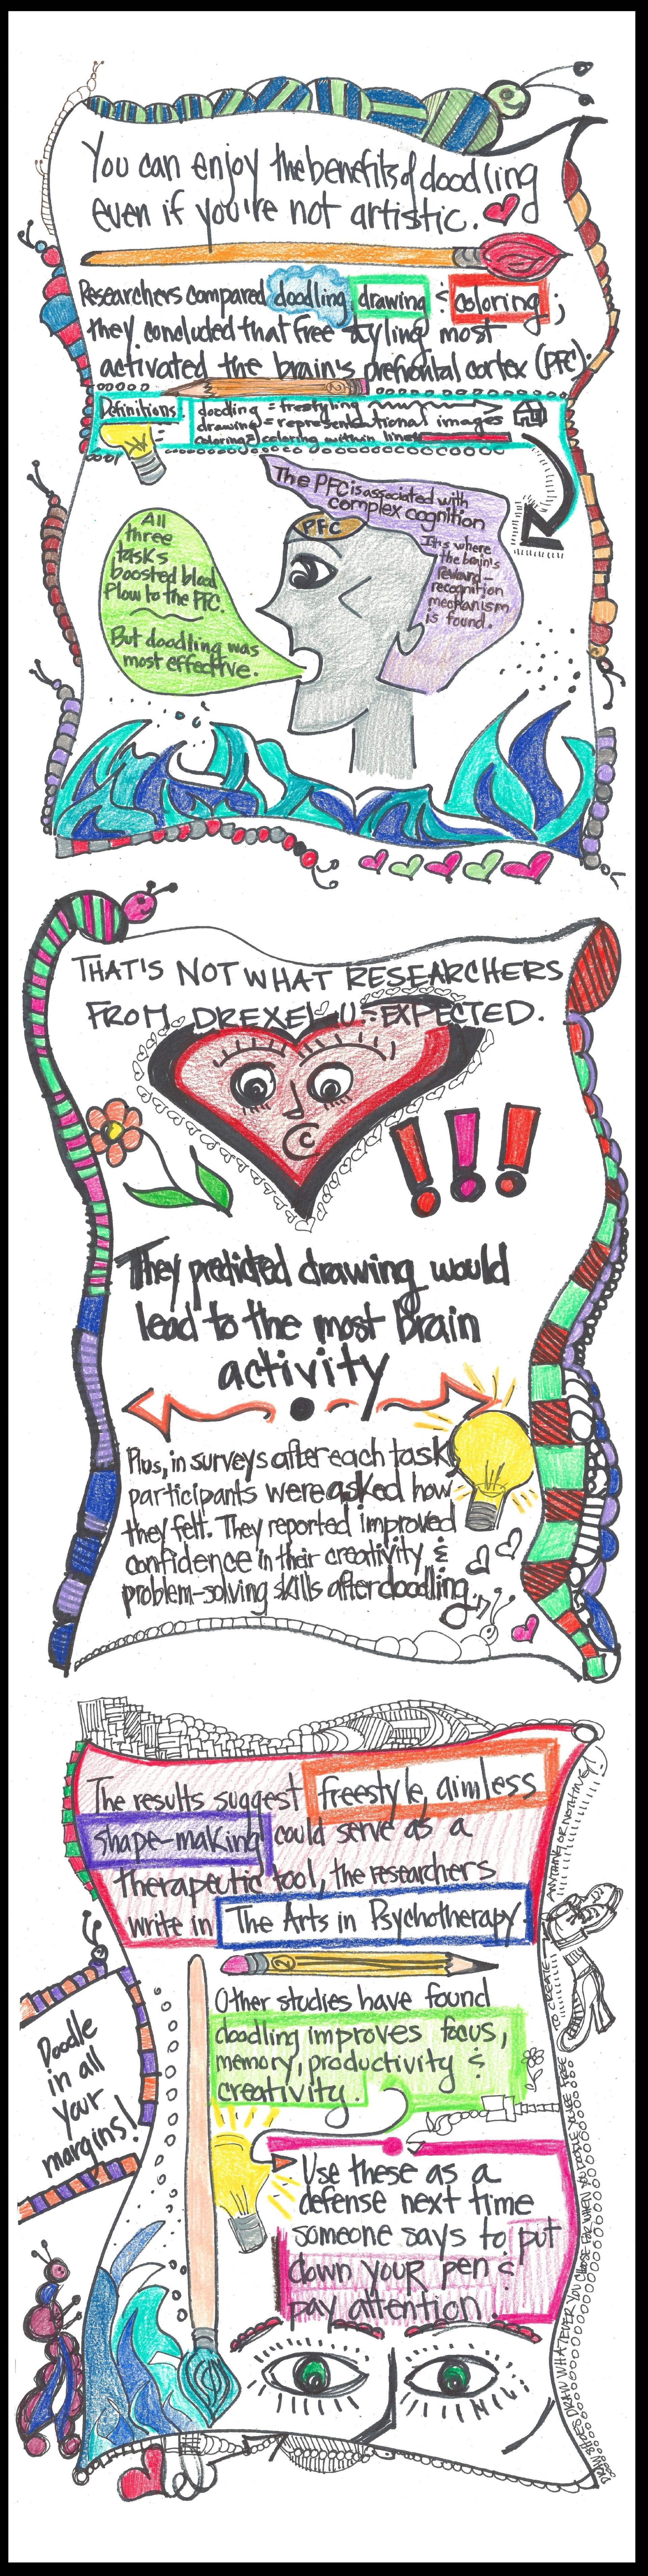 You can enjoy the benefits of doodling
even if you're not artistic.
Researchers compared doodling, drawing & coloring;
they concluded that free styling most
activated the brain's prefrontal cortex (PFC).
Definitions
doodling = freestyling
drawing = representational images
coloring = coloring within lines
The PFC is associated with
complex cognition
PFC
It is where
the brain's
reward-
recognition
mechanism
is found.
All
three
tasks
boosted blood
flow to the PFC.
But doodling was
most effective.
THAT'S NOT WHAT RESEARCHERS
FROM DREXEL U. EXPECTED.
They predicted drawing would
lead to the most brain
activity
Plus, in surveys after each task,
participants were asked how
they felt. They reported improved
confidence in their creativity &
problem-solving skills after doodling.
The results suggest freestyle, aimless
shape-making could serve as a
therapeutic tool, the researchers
write in The Arts in Psychotherapy.
Other studies have found
doodling improves focus,
memory, productivity &
creativity.
Doodle
in all
your
margins!
Use these as a
defense next time
someone says to put
down your pen &
pay attention.
DRAW WHATEVER YOU CHOOSE FOR WHEN YOU DOODLE YOU'RE FREE
TO CREATE
ANYTHING OR NOTHING!